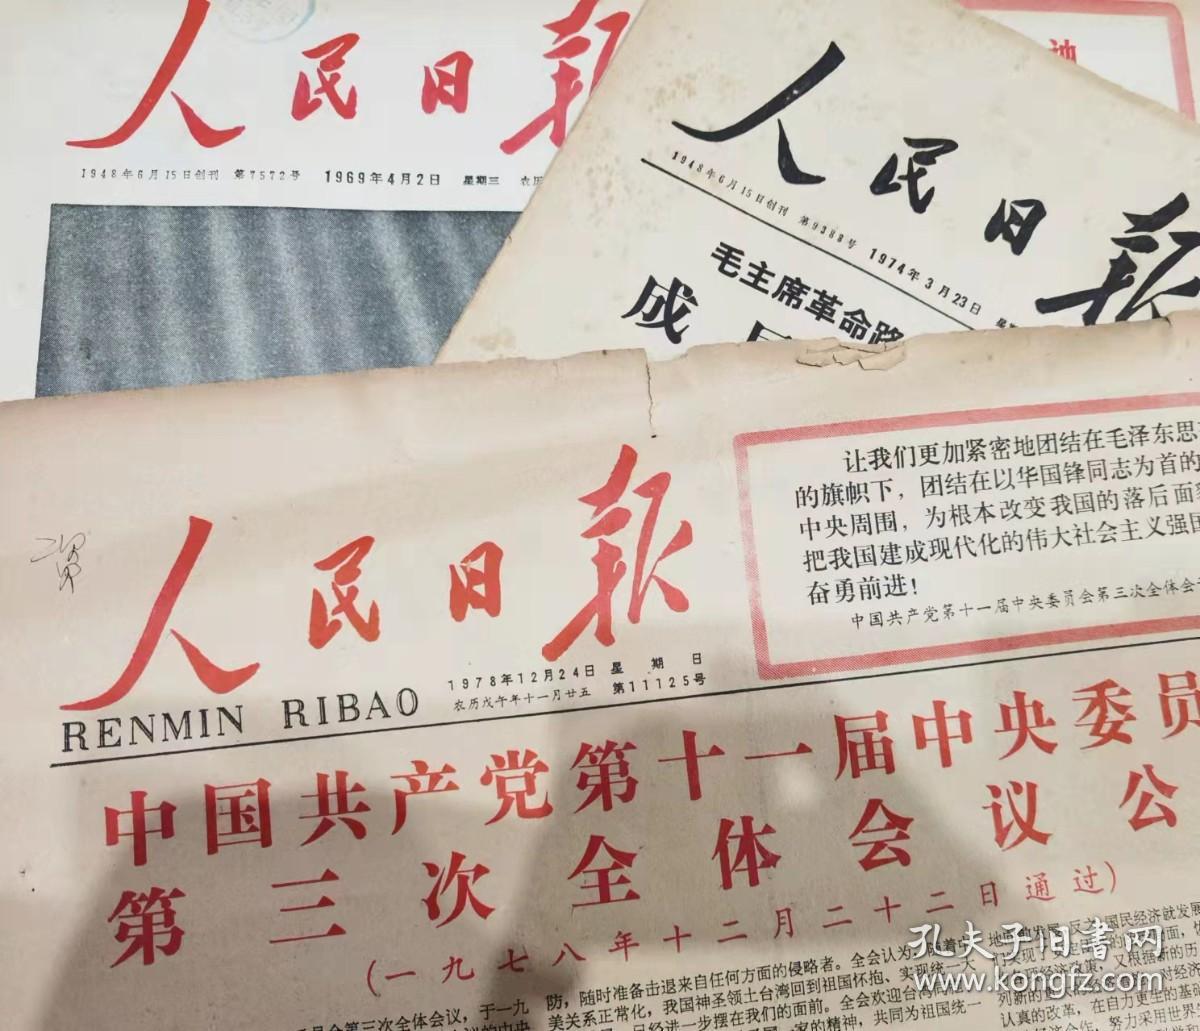 人民日報
1948年6月15日创刊 第7572号 1969年4月2日 星期三 农历
人民日報
1948年6月15日创刊 第9388号 1974年3月23日
毛主席革命路
成
让我们更加紧密地团结在毛泽东思
的旗帜下，团结在以华国锋同志为首的
中央周围，为根本改变我国的落后面貌
把我国建成现代化的伟大社会主义强国
奋勇前进！
中国共产党第十一届中央委员会第三次全体会
人民日報
RENMIN RIBAO
1978年12月24日 星期日
农历戊午年十一月廿五 第11125号
中国共产党第十一届中央委员
第三次全体会议公
(一九七八年十二月二十二日通过)
防，随时准备击退来自任何方面的侵略者。全会认为，随着中
美关系正常化，我国神圣领土台湾回到祖国怀抱、实现统一大
孔夫子旧书网
www.kongfz.com